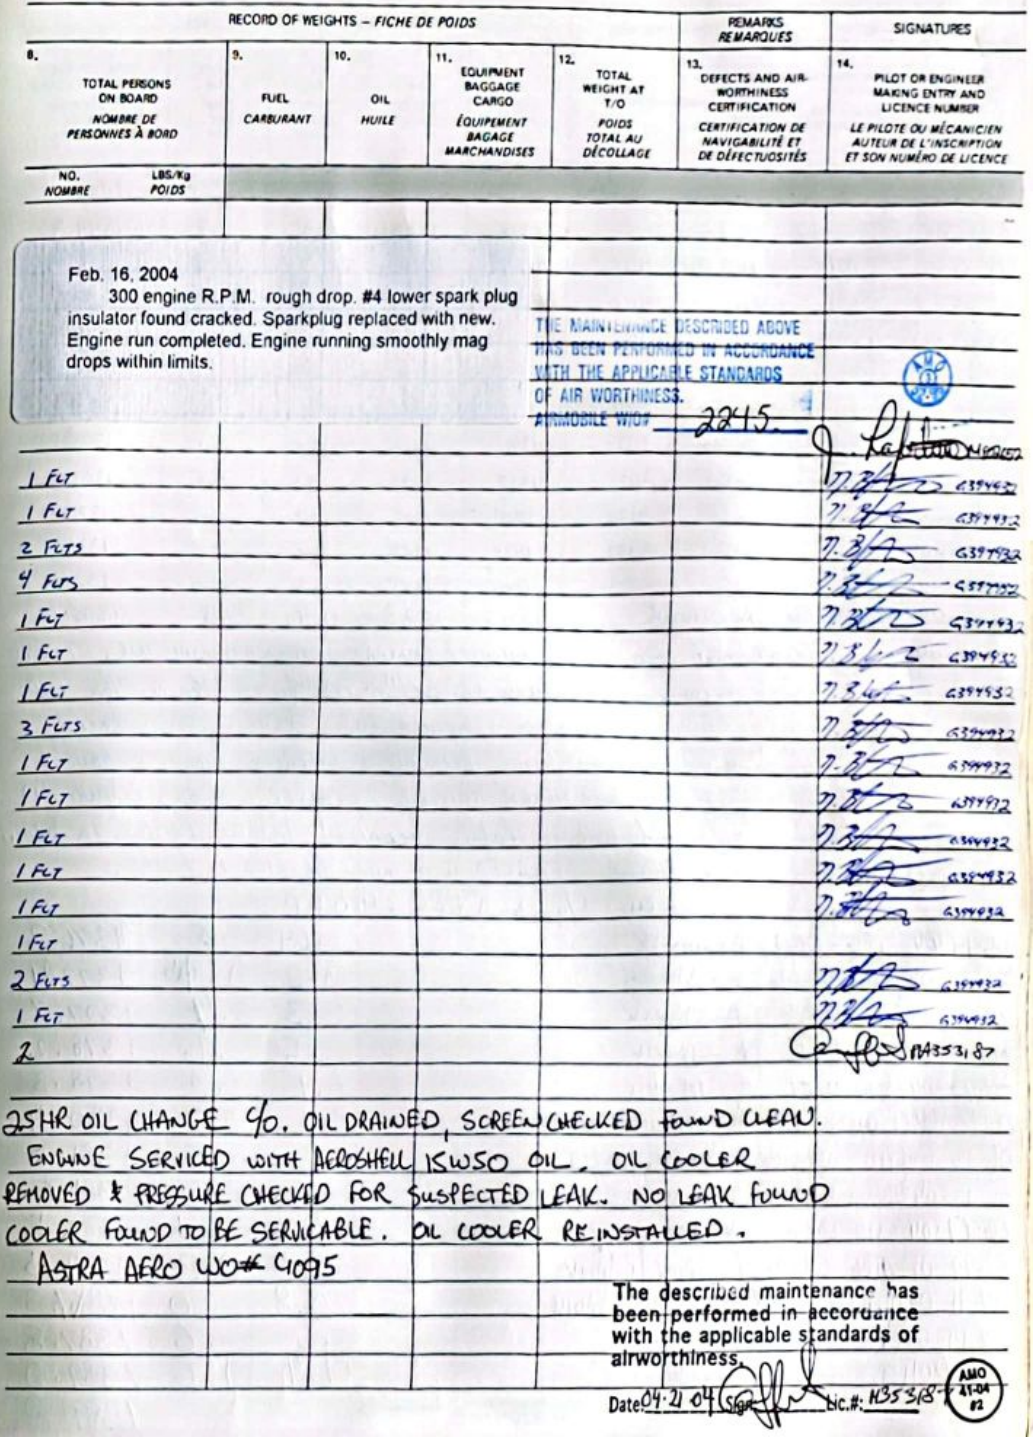 RECORD OF WEIGHTS – FICHE DE POIDS
REMARKS
REMARQUES
SIGNATURES
8.
TOTAL PERSONS
ON BOARD
NOMBRE DE
PERSONNES À BORD
9.
FUEL
CARBURANT
10.
OIL
HUILE
11.
EQUIPMENT
BAGGAGE
CARGO
ÉQUIPEMENT
BAGAGE
MARCHANDISES
12.
TOTAL
WEIGHT AT
T/O
POIDS
TOTAL AU
DÉCOLLAGE
13.
DEFECTS AND AIR-
WORTHINESS
CERTIFICATION
CERTIFICATION DE
NAVIGABILITÉ ET
DE DÉFECTUOSITÉS
14.
PILOT OR ENGINEER
MAKING ENTRY AND
LICENCE NUMBER
LE PILOTE OU MÉCANICIEN
AUTEUR DE L'INSCRIPTION
ET SON NUMÉRO DE LICENCE
NO.
NOMBRE
LBS/Kg
POIDS
Feb. 16, 2004
300 engine R.P.M. rough drop. #4 lower spark plug
insulator found cracked. Sparkplug replaced with new.
Engine run completed. Engine running smoothly mag
drops within limits.
THE MAINTENANCE DESCRIBED ABOVE
HAS BEEN PERFORMED IN ACCORDANCE
WITH THE APPLICABLE STANDARDS
OF AIR WORTHINESS.
AIRMOBILE W/O# 2245
1 FLT G394932
1 FLT G394932
2 FLTS G394932
4 FLTS
1 FLT G394932
1 FLT G394932
1 FLT G394932
3 FLTS G394932
1 FLT G394932
1 FLT G394932
1 FLT G394932
1 FLT G394932
1 FLT G394932
1 FLT
2 FLTS G394932
1 FLT G394932
2
25HR OIL CHANGE C/O. OIL DRAINED, SCREEN CHECKED FOUND CLEAN.
ENGINE SERVICED WITH AEROSHELL 15W50 OIL. OIL COOLER
REMOVED & PRESSURE CHECKED FOR SUSPECTED LEAK. NO LEAK FOUND
COOLER FOUND TO BE SERVICABLE. OIL COOLER REINSTALLED.
ASTRA AERO WO# 4095
The described maintenance has
been performed in accordance
with the applicable standards of
airworthiness.
Date: 04-21-04 Sign Lic.#: M353187
AMO
41-04
#2